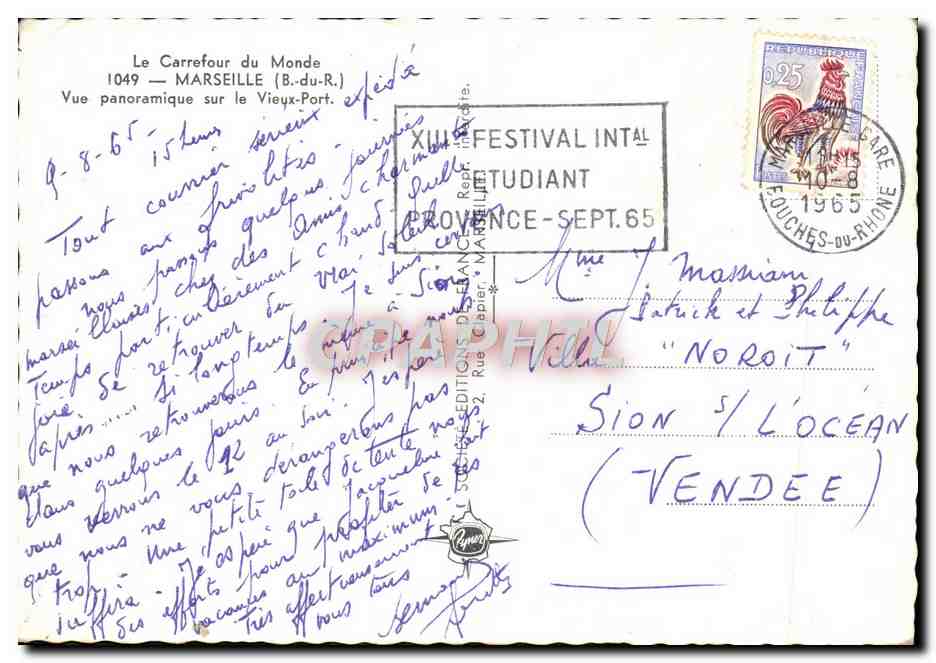 Le Carrefour du Monde
1049 — MARSEILLE (B.-du-R.)
Vue panoramique sur le Vieux-Port.
9-8-65- 15 heures
Tout courrier sérieux expédié
passons aux frivolités -
nous passons quelques journées
marseillaises chez des Amis charmants
Temps particulièrement chaud. Quelle
joie de se retrouver au vrai soleil
après..... si longtemps. Je suis certain
que nous retrouverons le même à Sion
dans quelques jours. En principe nous
vous verrons le 12 au soir. J'espère
que nous ne vous dérangerons pas
trop. Une petite toile de tente nous
suffira - J'espère que Jacqueline fait
des efforts pour profiter de ses
vacances au maximum -
Très affectueusement à
vous tous
XIII FESTIVAL INTAL
ETUDIANT
PROVENCE - SEPT. 65
REPUBLIQUE FRANCAISE
0,25
MARSEILLE GARE
15
10-8
1965
BOUCHES-DU-RHONE
SOCIÉTÉ EDITIONS DE FRANCE Repr. interdite.
2, Rue Clapier, MARSEILLE
CPAPHIL
Mme J. Massiani
Patrick et Philippe
Villa "NOROIT"
SION s/ L'OCÉAN
(VENDEE)